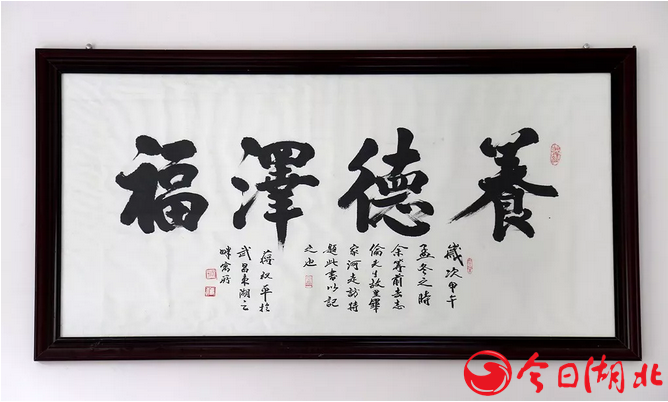 養德澤福
歲次甲午
孟冬之時
余等前去志
倫先生故里鐸
家河走訪特
題此書以記
之也
蔣汉平於
武昌東湖之
畔寓所
今日湖北